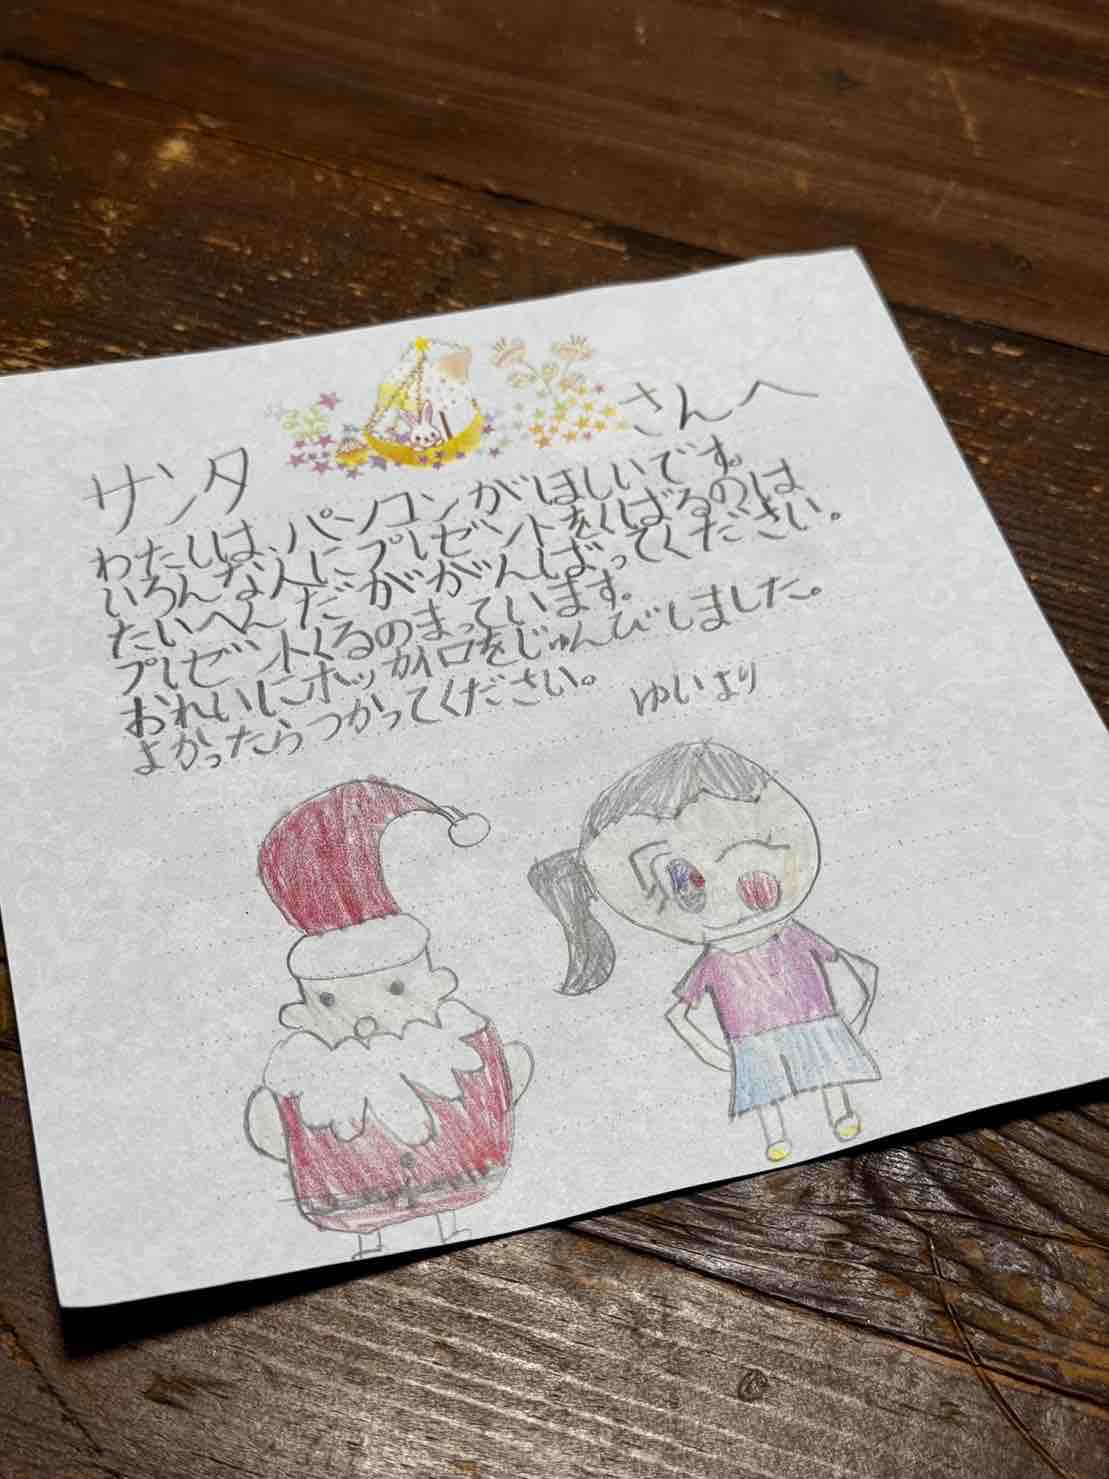 サンタ さんへ
わたしは、パソコンがほしいです。
いろんな人にプレゼントをくばるのは
たいへんだががんばってください。
プレゼントくるのまっています。
おれいにホッカイロをじゅんびしました。
よかったらつかってください。
ゆいより